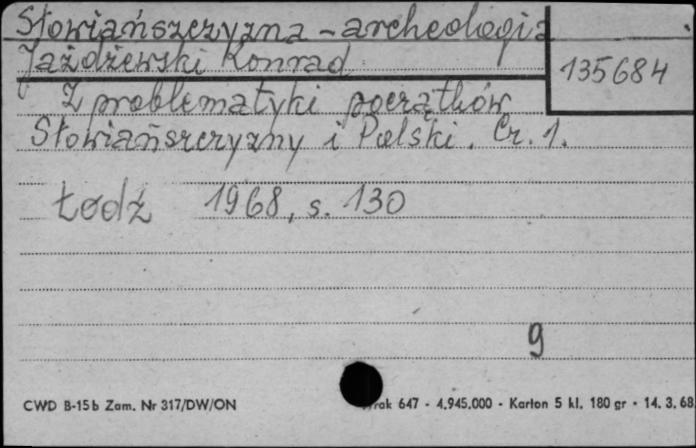 Słowiańszczyzna - archeologia
Jażdżewski Konrad
135684
Z problematyki początków
Słowiańszczyzny i Polski. Cz. 1.
Łódź 1968, s. 130
9
CWD B-15b Zam. Nr 317/DW/ON
rak 647 - 4.945.000 - Karton 5 kl. 180 gr - 14. 3. 68